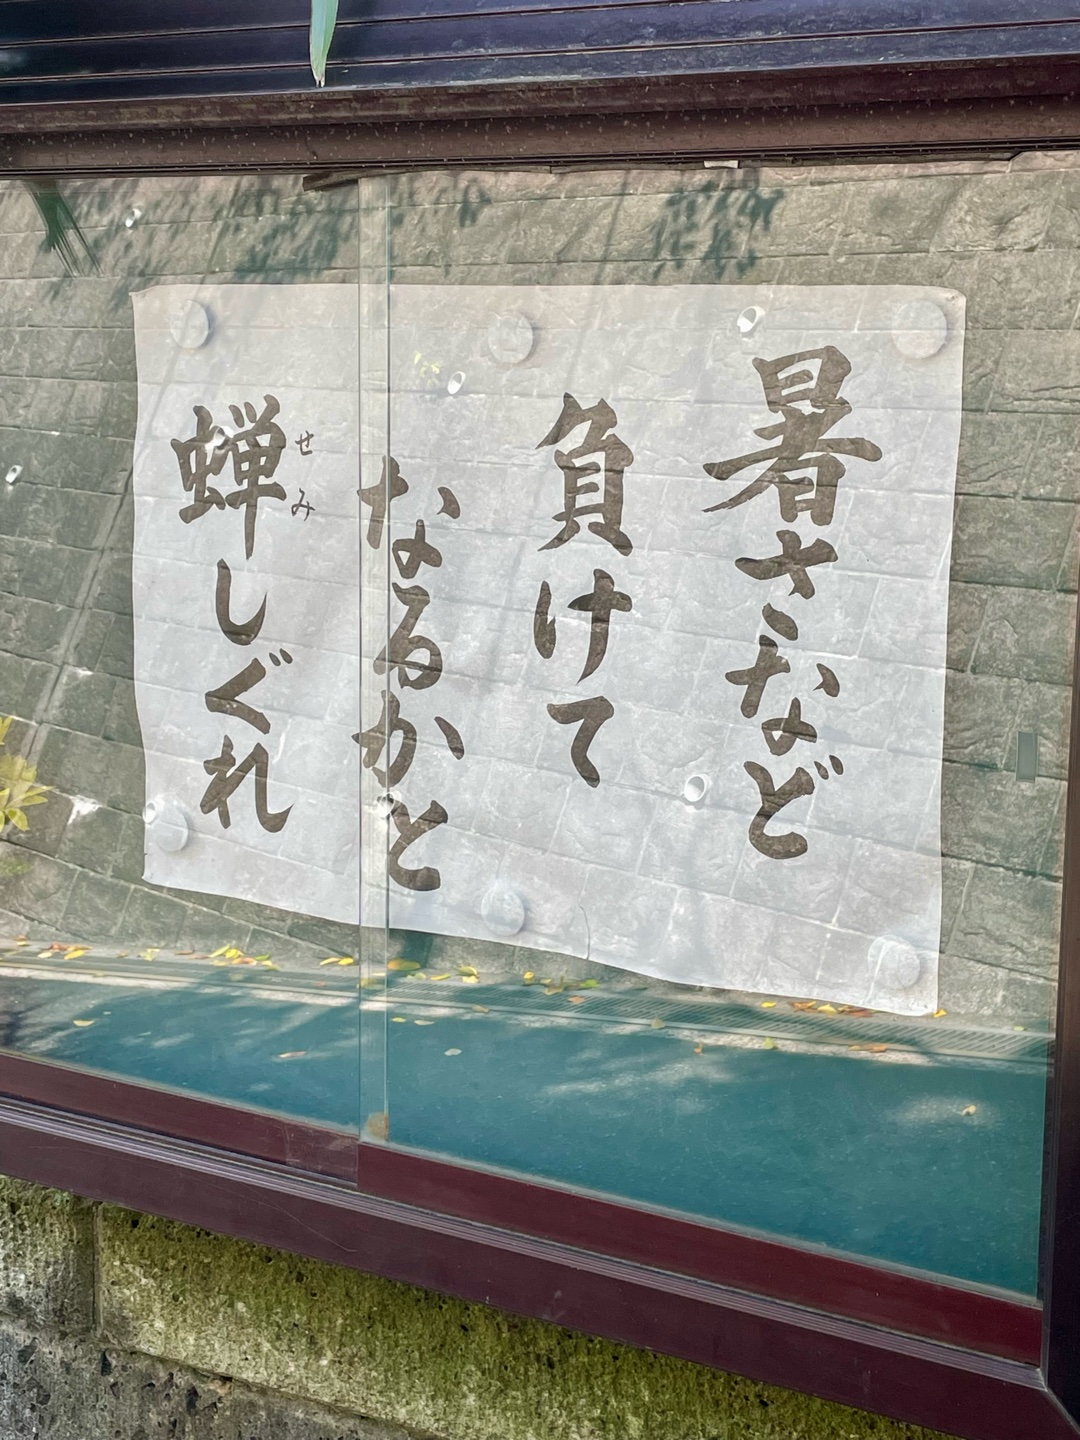 暑さなど
負けて
なるかと
蝉しぐれ
せみ